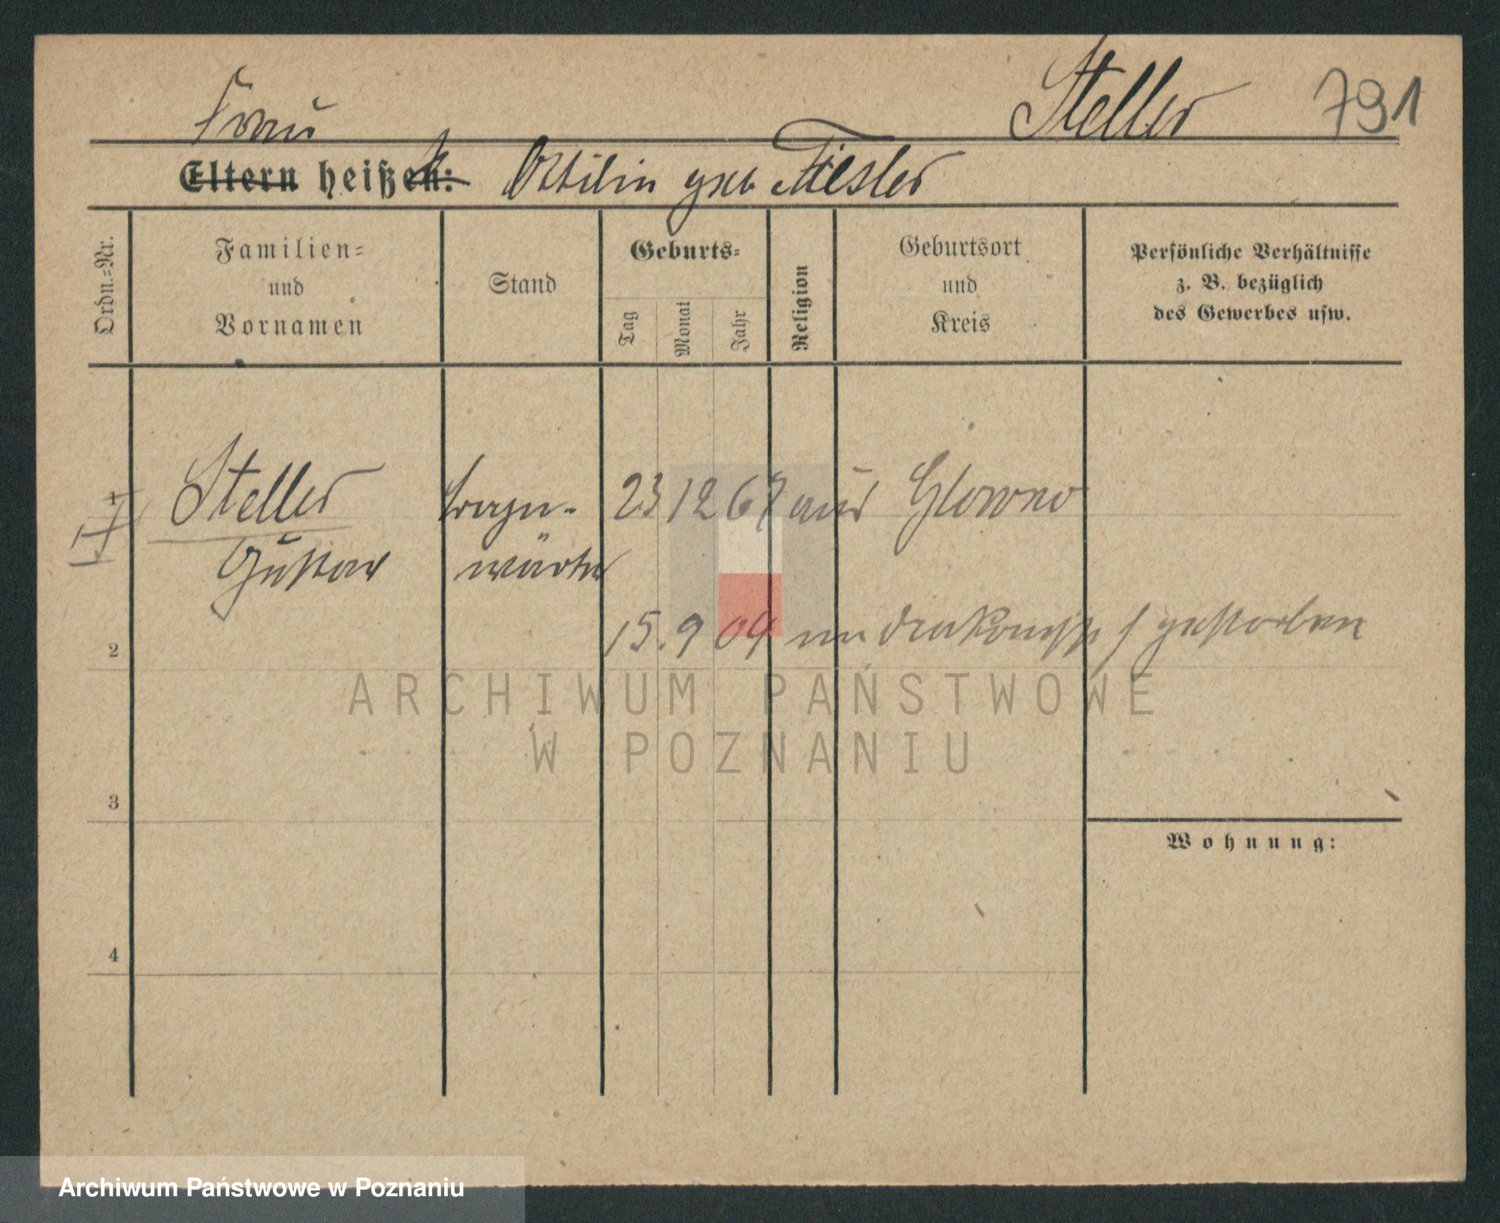 Steller 791
Frau
Eltern heißen: Ottilie geb Fiesler
Ordn.-Nr.
Familien-
und
Vornamen
Stand
Geburts-
Tag
Monat
Jahr
Religion
Geburtsort
und
Kreis
Persönliche Verhältnisse
z. B. bezüglich
des Gewerbes usw.
Steller 23 12 67 aus Glowno
Gustav wärter
15. 9 04 im gestorben
2
3
4
Wohnung:
ARCHIWUM PAŃSTWOWE
W POZNANIU
Archiwum Państwowe w Poznaniu